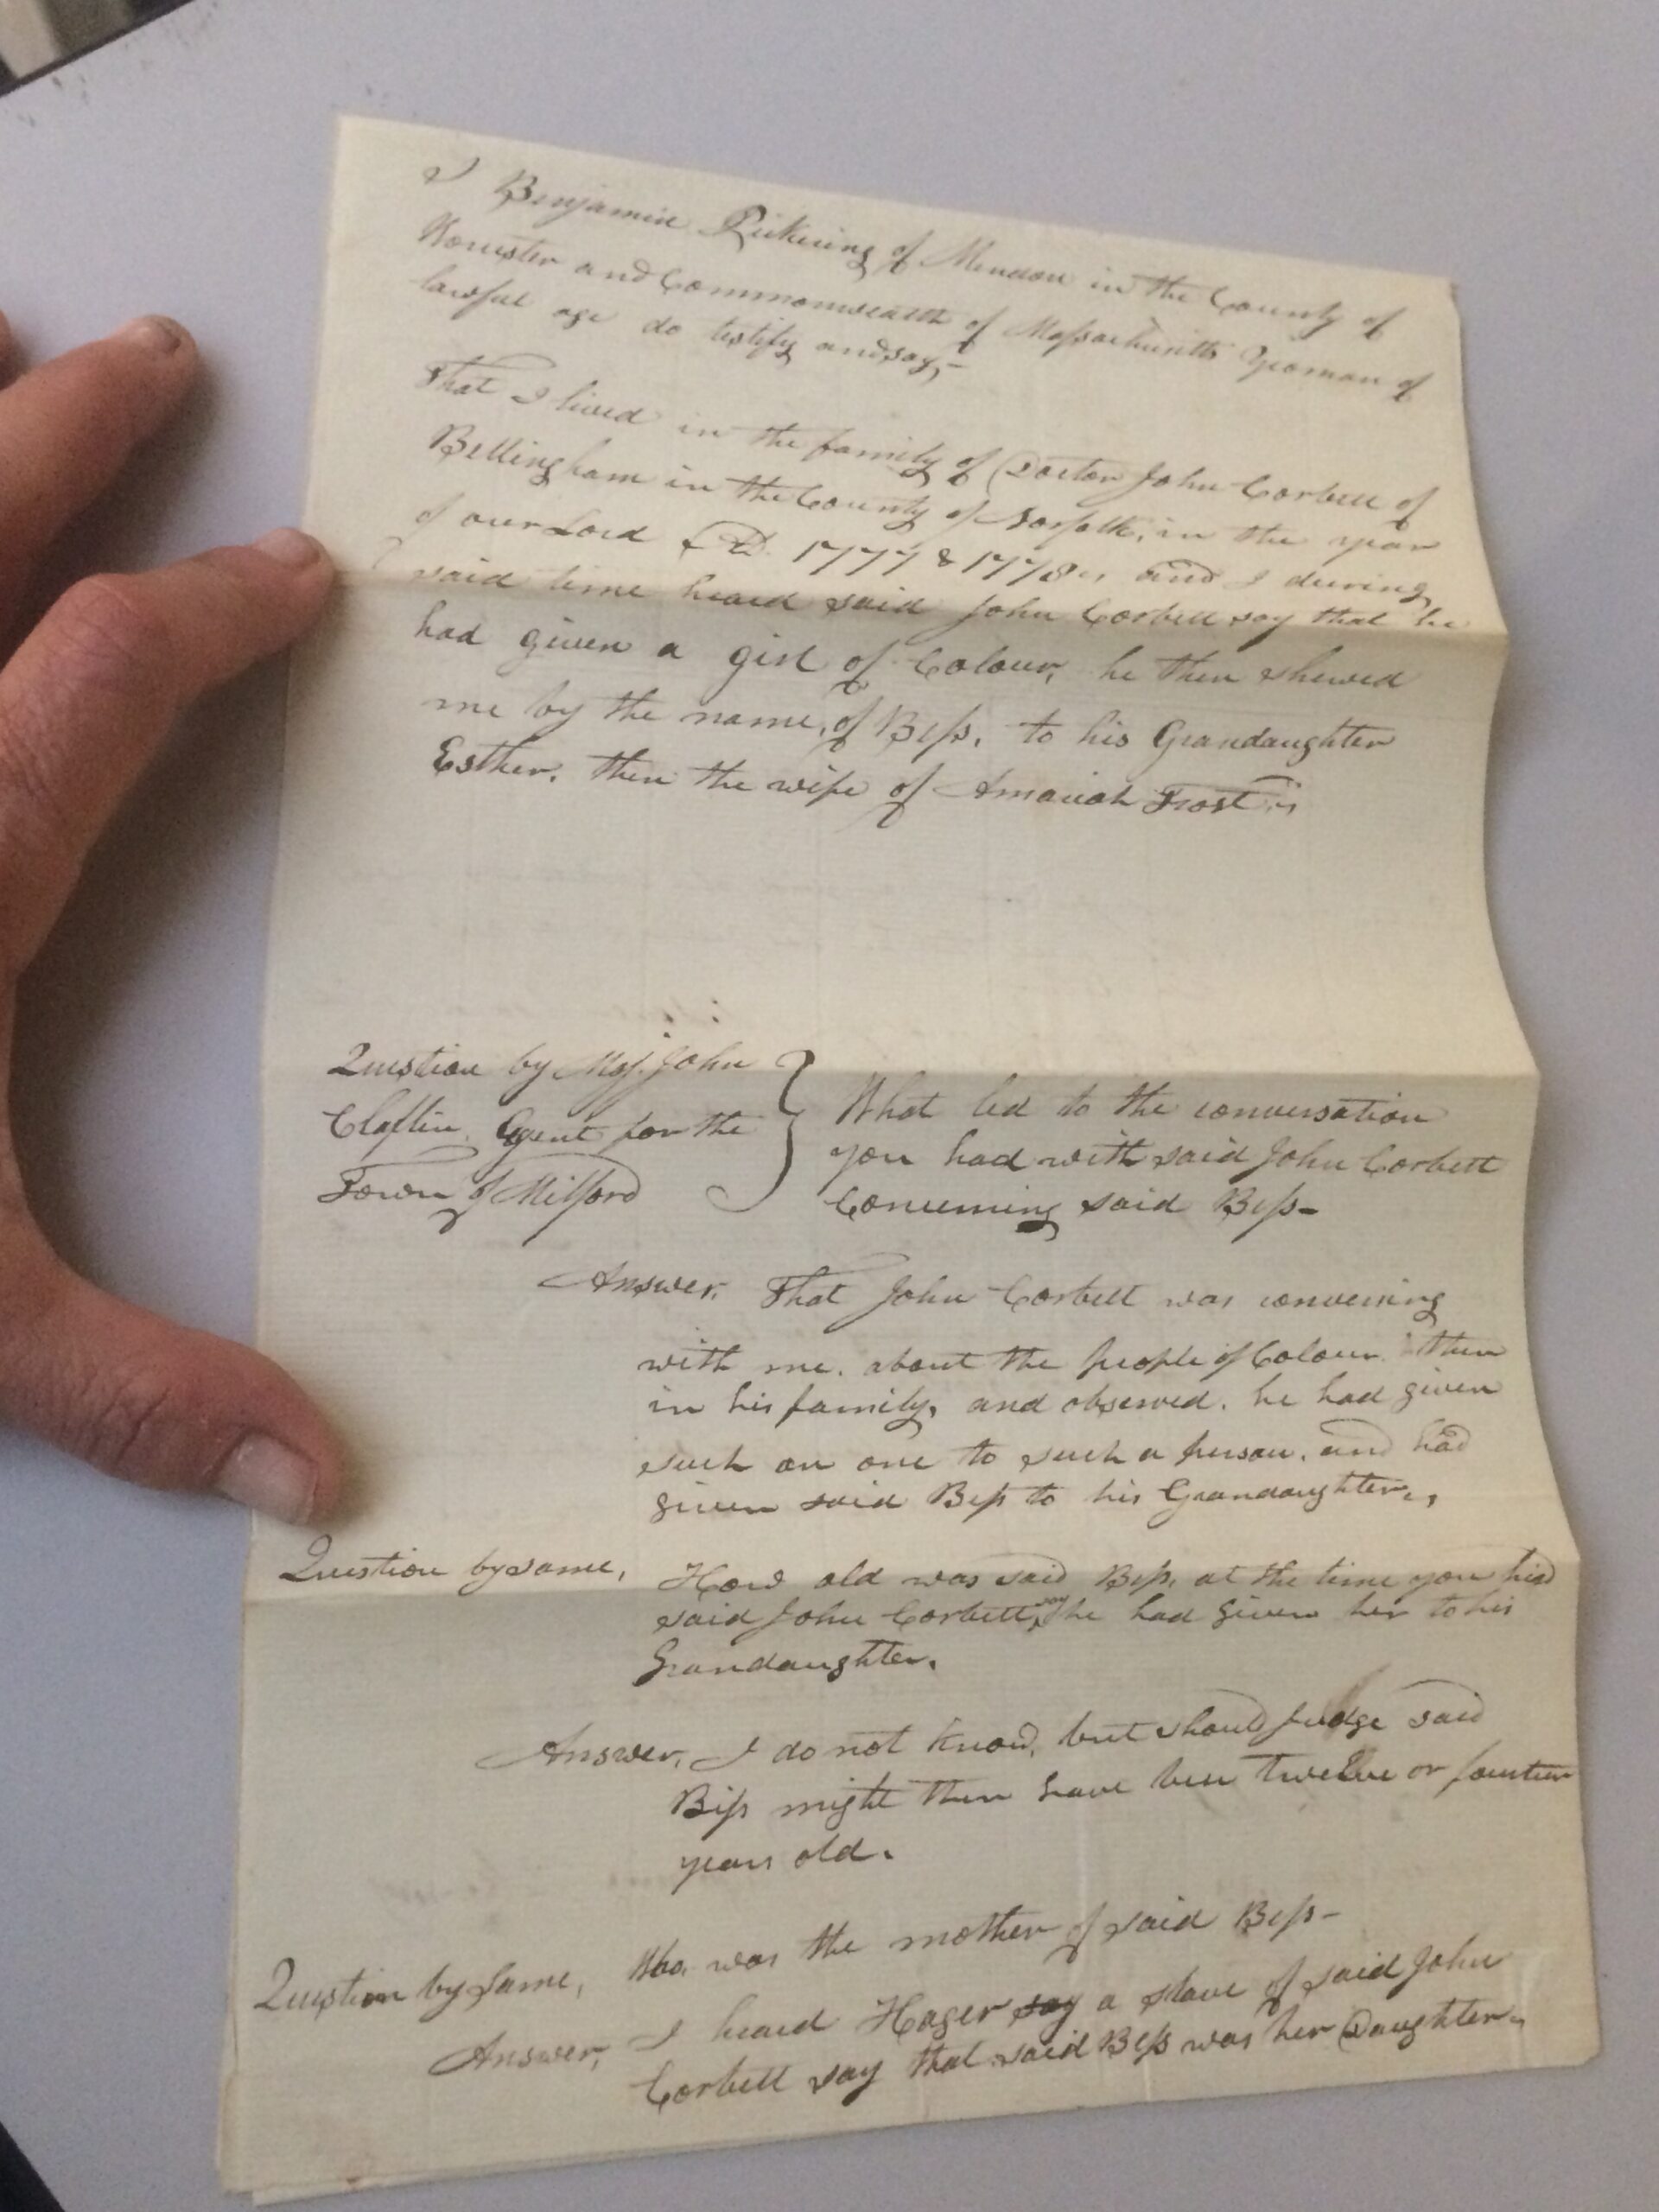 I Benjamin Pickering of Mendon in the County of
Worcester and Commonwealth of Massachusetts Yeoman of
lawful age do testify and say,-
That I lived in the family of Doctor John Corbett of
Bellingham in the County of Norfolk, in the year
of our Lord AD. 1777 & 1778., and I during
said time heard said John Corbett say that he
had given a girl of Colour, he then shewed
me by the name, of Bess, to his Grandaughter
Esther. then the wife of Amariah Frost.,
Question by Maj. John
Claflin Agent for the
Town of Milford
What led to the conversation
you had with said John Corbett
Concerning said Bess-
Answer. That John Corbett was conversing
with me. about the people of Colour then
in his family, and observed. he had given
such an one to such a person. and had
given said Bess to his Grandaughter.,
Question by same, How old was said Bess, at the time you
said John Corbett, say he had given her to his
Grandaughter.
Answer, I do not know, but should judge said
Bess might then have been twelve or fourteen
years old.
Question by Same, Who was the mother of said Bess-
Answer, I heard Hager say a slave of said John
Corbett say that said Bess was her Daughter.,